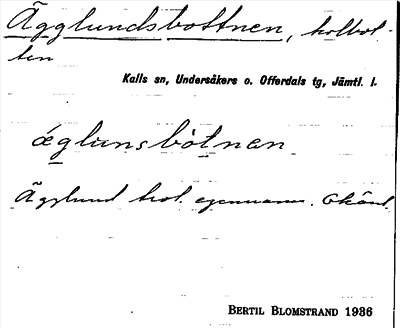 Ägglundsbottnen, kolbot-
ten
Kalls sn, Undersåkers o. Offerdals tg, Jämtl. l.
æglunsbòtnen
Ägglund trol. egennamn. Okänt.
BERTIL BLOMSTRAND 1936